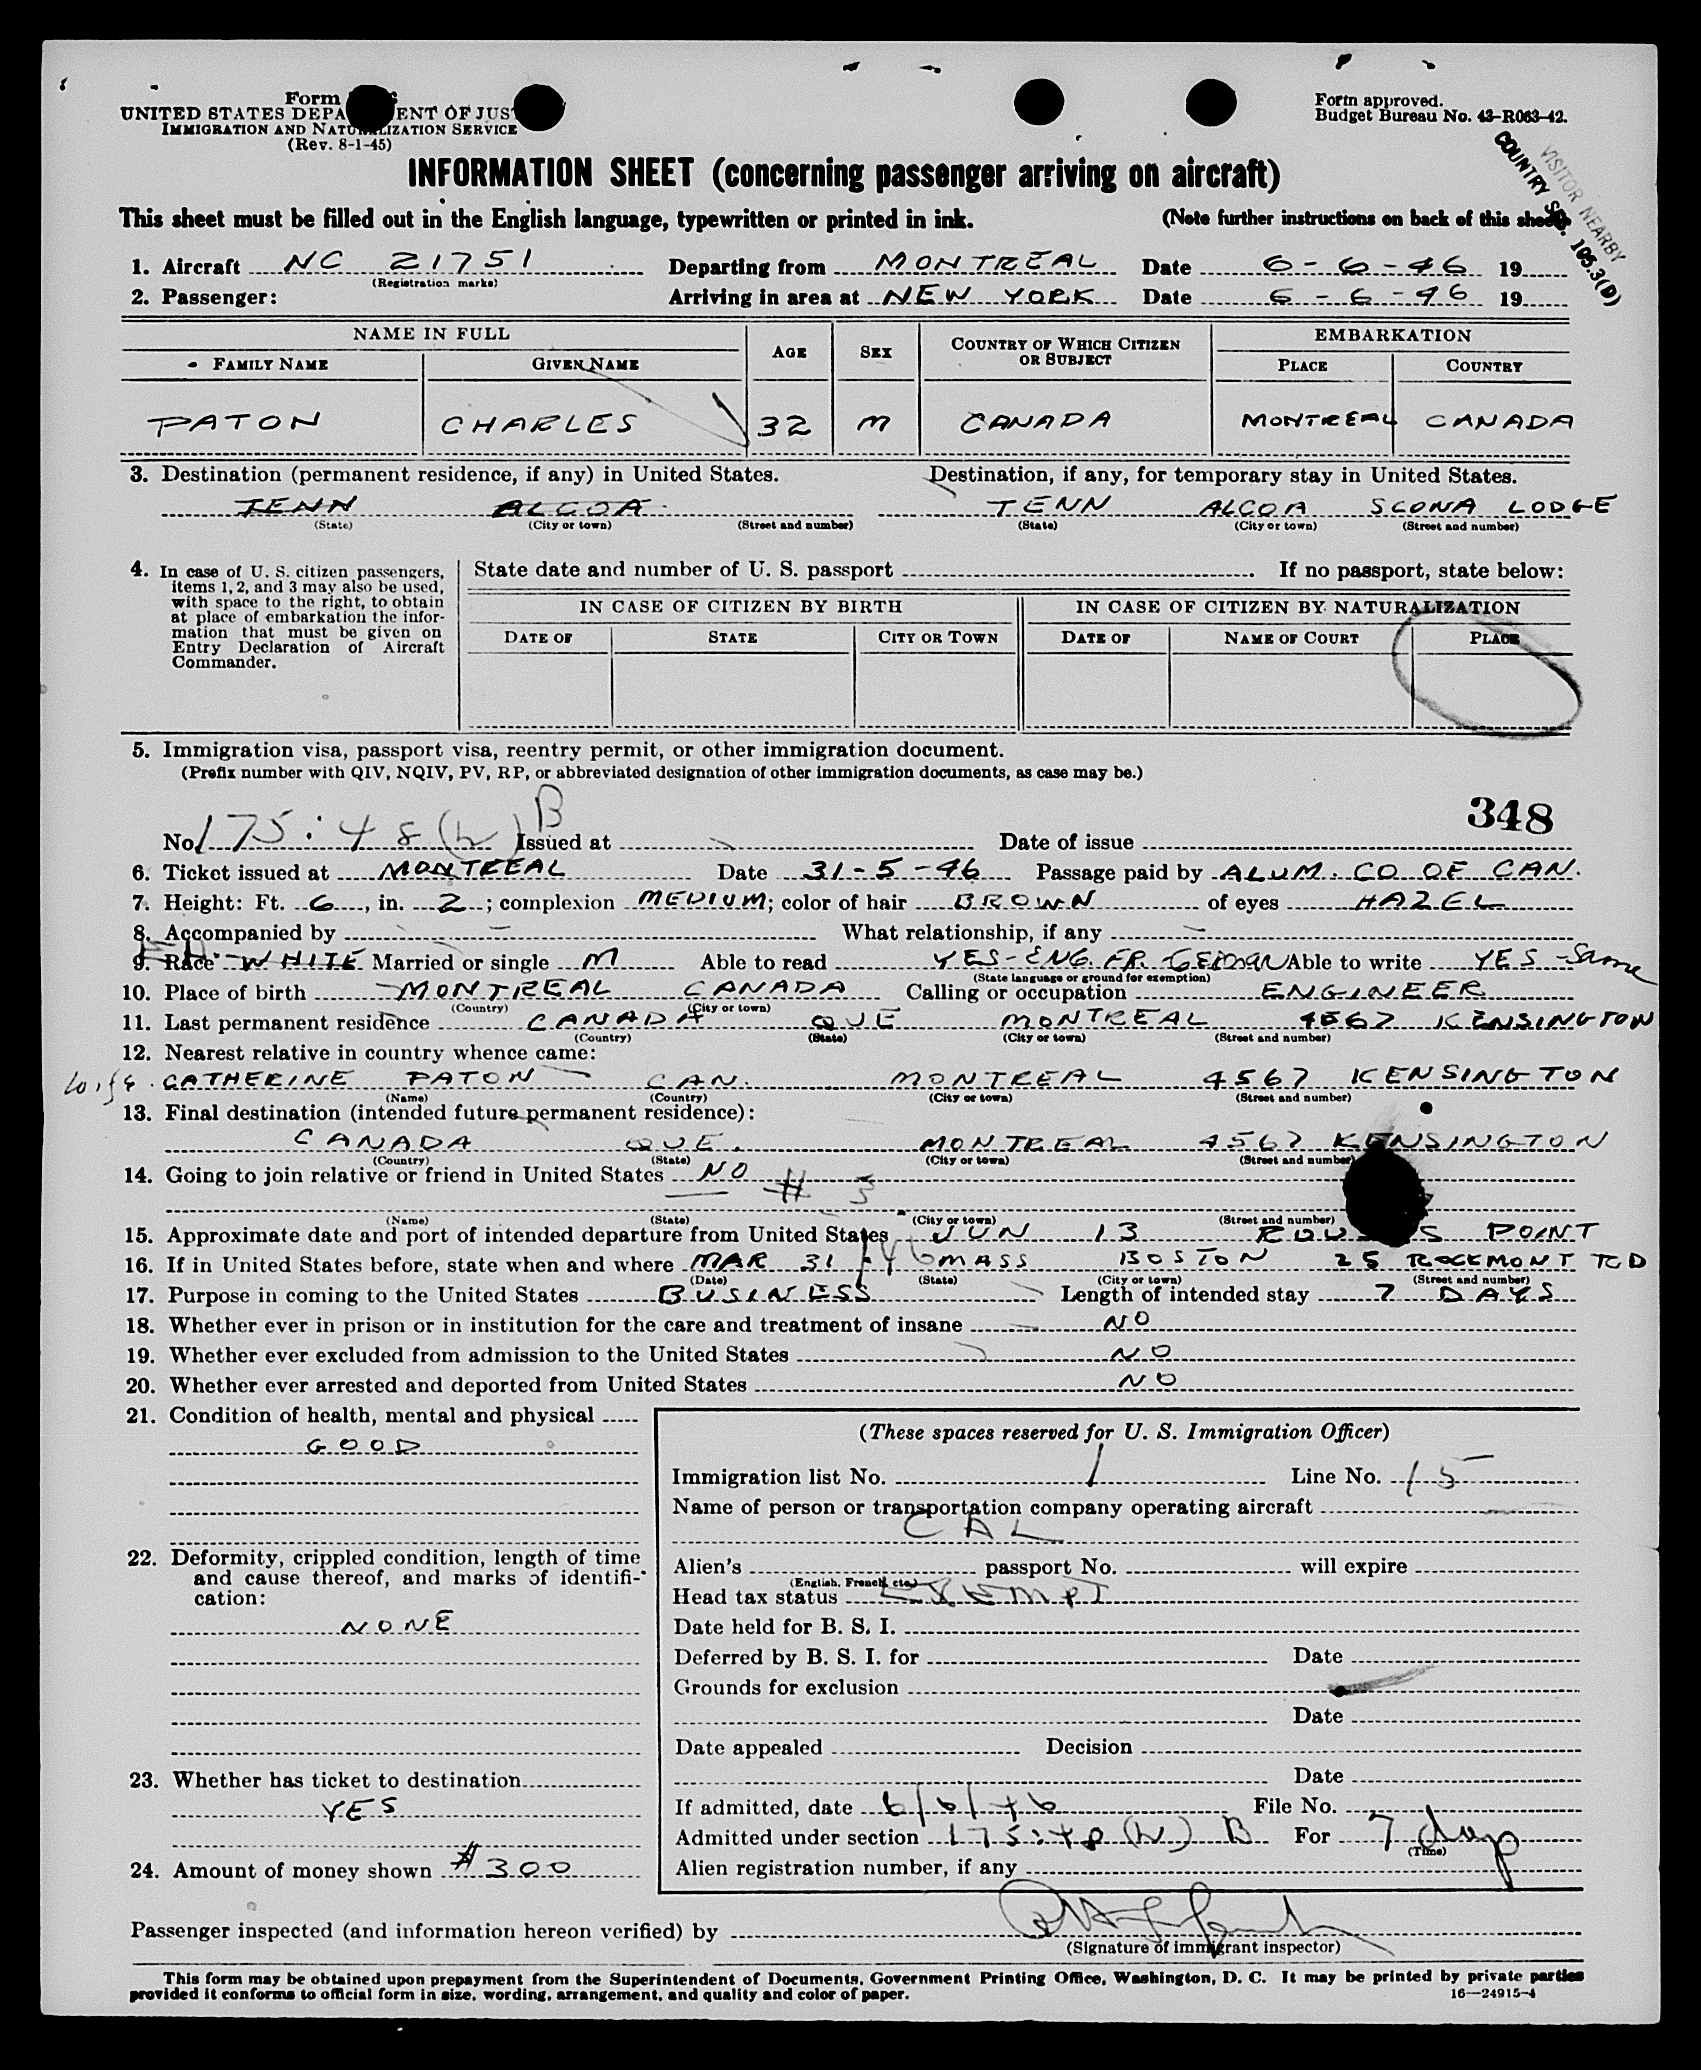 Form
UNITED STATES DEPA ENT OF JUS
IMMIGRATION AND NATURALIZATION SERVICE
(Rev. 8-1-45)
Form approved.
Budget Bureau No. 43-R063-42.
VISITOR NEARBY
COUNTRY SEC. 105.3(D)
INFORMATION SHEET (concerning passenger arriving on aircraft)
This sheet must be filled out in the English language, typewritten or printed in ink. (Note further instructions on back of this sheet)
1. Aircraft NC 21751 Departing from MONTREAL Date 6-6-46 19
(Registration marks)
2. Passenger: Arriving in area at NEW YORK Date 6-6-46 19
NAME IN FULL AGE SEX COUNTRY OF WHICH CITIZEN OR SUBJECT EMBARKATION
FAMILY NAME GIVEN NAME PLACE COUNTRY
PATON CHARLES 32 M CANADA MONTREAL CANADA
3. Destination (permanent residence, if any) in United States. Destination, if any, for temporary stay in United States.
TENN ALCOA TENN ALCOA SCONA LODGE
(State) (City or town) (Street and number) (State) (City or town) (Street and number)
4. In case of U. S. citizen passengers,
items 1, 2, and 3 may also be used,
with space to the right, to obtain
at place of embarkation the infor-
mation that must be given on
Entry Declaration of Aircraft
Commander.
State date and number of U. S. passport . If no passport, state below:
IN CASE OF CITIZEN BY BIRTH IN CASE OF CITIZEN BY NATURALIZATION
DATE OF STATE CITY OR TOWN DATE OF NAME OF COURT PLACE
5. Immigration visa, passport visa, reentry permit, or other immigration document.
(Prefix number with QIV, NQIV, PV, RP, or abbreviated designation of other immigration documents, as case may be.)
348
No. 175:48(W)B Issued at Date of issue
6. Ticket issued at MONTREAL Date 31-5-46 Passage paid by ALUM. CO OF CAN.
7. Height: Ft. 6, in. 2; complexion MEDIUM; color of hair BROWN of eyes HAZEL
8. Accompanied by What relationship, if any
9. Race WHITE Married or single M Able to read YES-ENG. FR. GERMAN Able to write YES - Same
(State language or ground for exemption)
10. Place of birth MONTREAL CANADA Calling or occupation ENGINEER
(Country) (City or town)
11. Last permanent residence CANADA QUE MONTREAL 4567 KENSINGTON
(Country) (State) (City or town) (Street and number)
12. Nearest relative in country whence came:
wife CATHERINE PATON CAN. MONTREAL 4567 KENSINGTON
(Name) (Country) (City or town) (Street and number)
13. Final destination (intended future permanent residence):
CANADA QUE. MONTREAL 4567 KENSINGTON
(Country) (State) (City or town) (Street and number)
14. Going to join relative or friend in United States NO # 3
(Name) (State) (City or town) (Street and number)
15. Approximate date and port of intended departure from United States JUN 13 ROUSES POINT
16. If in United States before, state when and where MAR 31/46 MASS BOSTON 25 ROCKMONT RD
(Date) (State) (City or town) (Street and number)
17. Purpose in coming to the United States BUSINESS Length of intended stay 7 DAYS
18. Whether ever in prison or in institution for the care and treatment of insane NO
19. Whether ever excluded from admission to the United States NO
20. Whether ever arrested and deported from United States NO
21. Condition of health, mental and physical
GOOD
22. Deformity, crippled condition, length of time
and cause thereof, and marks of identifi-
cation:
NONE
23. Whether has ticket to destination
YES
24. Amount of money shown $300
(These spaces reserved for U. S. Immigration Officer)
Immigration list No. 1 Line No. 15
Name of person or transportation company operating aircraft
CAL
Alien's passport No. will expire
(English, French, etc.)
Head tax status EXEMPT
Date held for B. S. I.
Deferred by B. S. I. for Date
Grounds for exclusion
Date
Date appealed Decision
Date
If admitted, date 6/6/46 File No.
Admitted under section 175:48(W) B For 7 days
(Time)
Alien registration number, if any
Passenger inspected (and information hereon verified) by
(Signature of immigrant inspector)
This form may be obtained upon prepayment from the Superintendent of Documents, Government Printing Office, Washington, D. C. It may be printed by private parties
provided it conforms to official form in size, wording, arrangement, and quality and color of paper.
16—24915-4